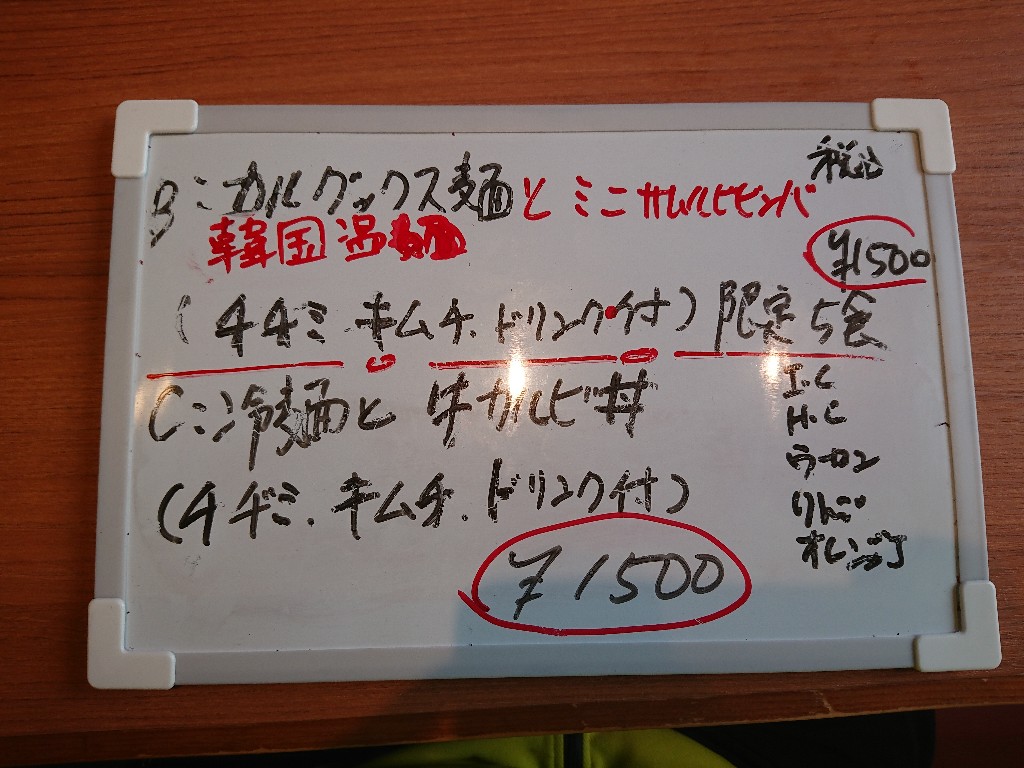 税込
B:カルグックス麺とミニサムルビビンバ
韓国温麺
¥1500
(チヂミ キムチ.ドリンク付)限定5食
C:冷麺と 牛カルビ丼
(チヂミ.キムチ.ドリンク付)
¥1500
I.C
H.C
ウーロン
オレンジ